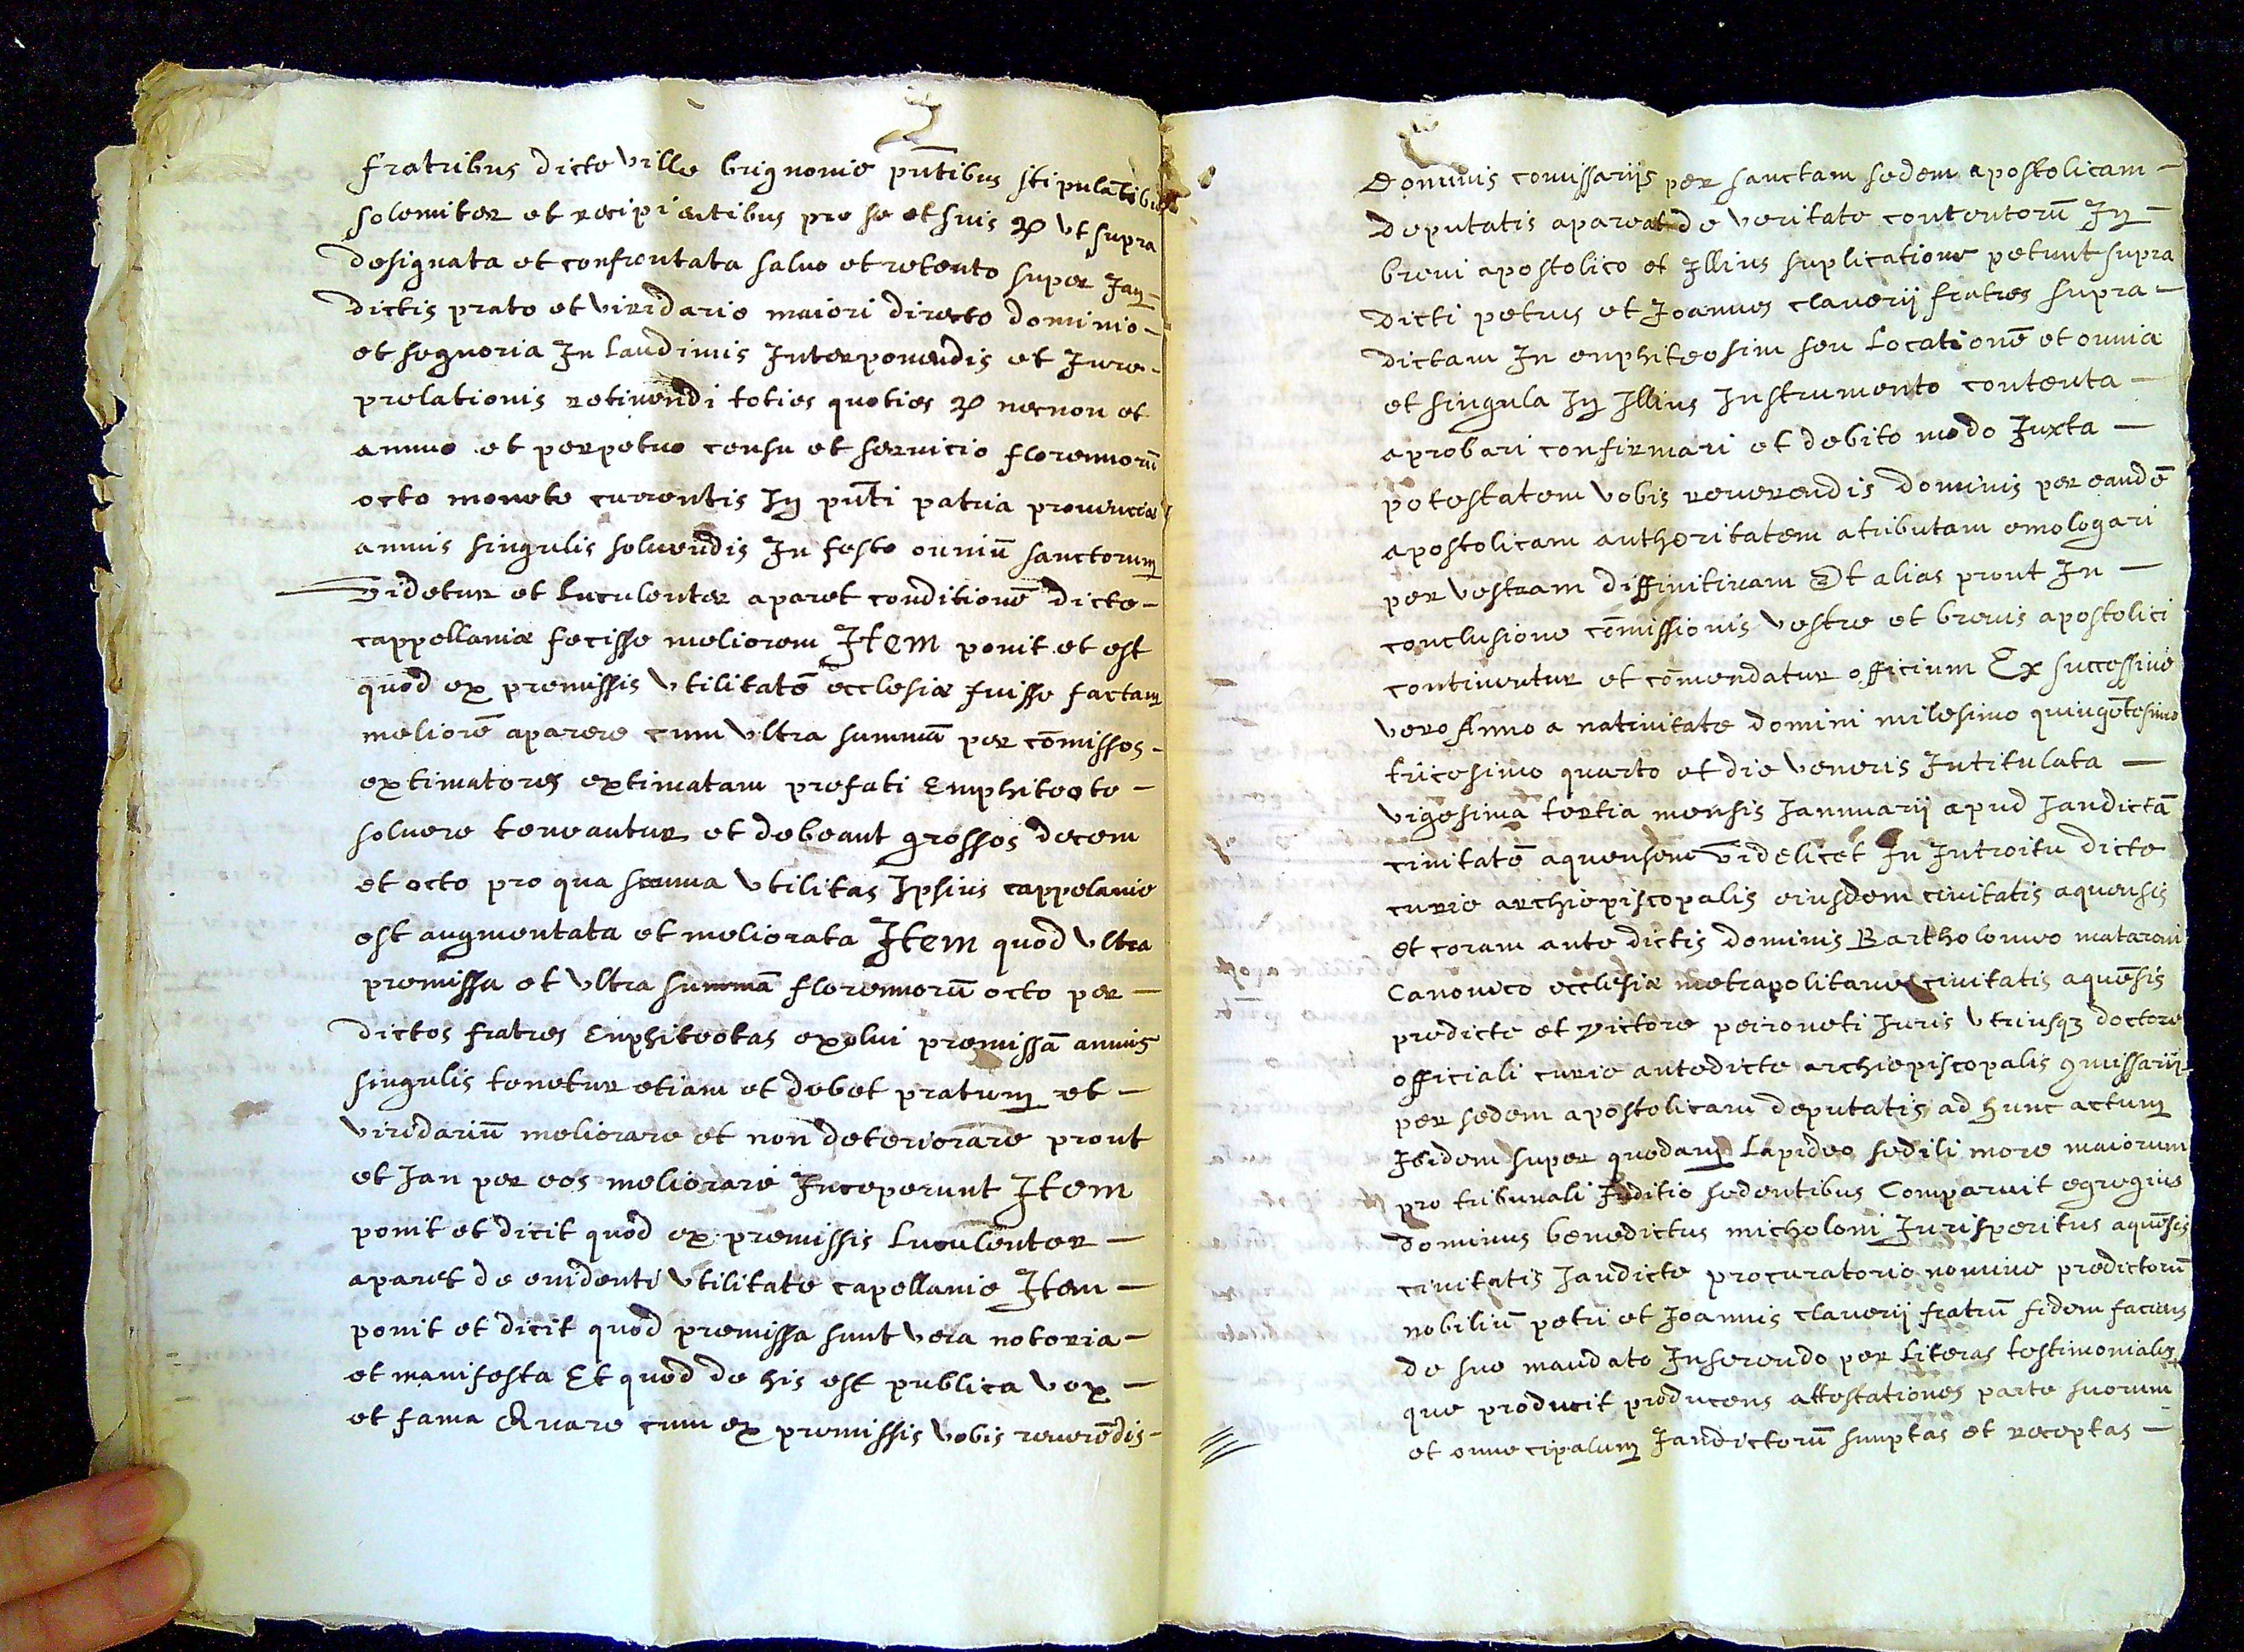 fratribus dicte ville brignonie pn̄tibus stipulātibus
solemniter et recipientibus pro se et suis ⁊c ut supra
designata et confrontata salvo et retento super Jam
dictis prato et viridario maiori directo dominio
et segnoria In laudimis Interponendis et Jure
prelationis retinendi toties quoties ⁊c necnon et
annuo et perpetuo censu et servicio florenorū
octo monete currentis In pn̄ti patria provincia
annis singulis solvendis In festo omniū sanctorum
videtur et Luculenter aparet conditionē dicte
cappellaniæ fecisse meliorem Item ponit et est
quod ex premissis utilitatē ecclesiæ fuisse factam
meliorē aparere cum ultra summā per cōmissos
extimatores extimatam prefati Emphiteote
solvere teneantur et debeant grossos decem
et octo pro qua summa utilitas Ipsius cappelanie
est augmentata et meliorata Item quod ultra
premissa et ultra summā florenorū octo per
dictos fratres Enphiteotas exolui premissā annis
singulis tenetur etiam et debet pratum et
viridariū meliorare et non deteriorare prout
et Jan per eos meliorare Inceperunt Item
ponit et dicit quod ex premissis Luculenter
aparet de evidenti utilitate capellanie Item
ponit et dicit quod premissa sunt vera notoria
et manifesta Et quod de his est publica vox
et fama Quare cum ex premissis vobis reverēdis
Dominis comissariis per sanctam sedem apostolicam
deputatis apareat de veritate contentorū In
brevi apostolico et Illius suplicatione petunt supra
dicti petrus et Joannes claverii fratres supra
dictam In enphiteosim seu Locationē et omnia
et singula In Illius Instrumento contenta
aprobari confirmari et debito modo Juxta
potestatem vobis reverendis dominis per eandē
apostolicam authoritatem atributam emologari
per vestram diffinitivam Et alias prout In
conclusione cōmissionis vestre et brevis apostolici
continentur et cōmendatur officium Ex successive
vero Anno a nativitate domini milesimo quingētesimo
tricesimo quarto et die veneris Intitulata
vigesima tertia mensis Jannuarii apud Jandictā
civitatē aquensem videlicet In Introitu dicte
curie archiepiscopalis eiusdem civitatis aquensis
et coram ante dictis dominis Bartholomeo mataroni
Canonico ecclesiæ metrapolitane civitatis aquēsis
predicte et victore peironeti Juris utriusqȝ doctore
officiali curie antedicte archiepiscopalis cōmissarii
per sedem apostolicam deputatis ad hunc actum
Ibidem super quodam Lapideo sedili more maiorum
pro tribunali Juditio sedentibus Comparuit egregius
dominus benedictus micholoni Jurisperitus aquēsis
civitatis Jandicte procuratorio nomine predictorū
nobiliū petri et Joannis claverii fratrū fidem faciens
de suo mandato Inserendo per Literas testimoniales
que producit producens attestationes parte suorum
et omne cipalum Jandictorū sumptas et receptas